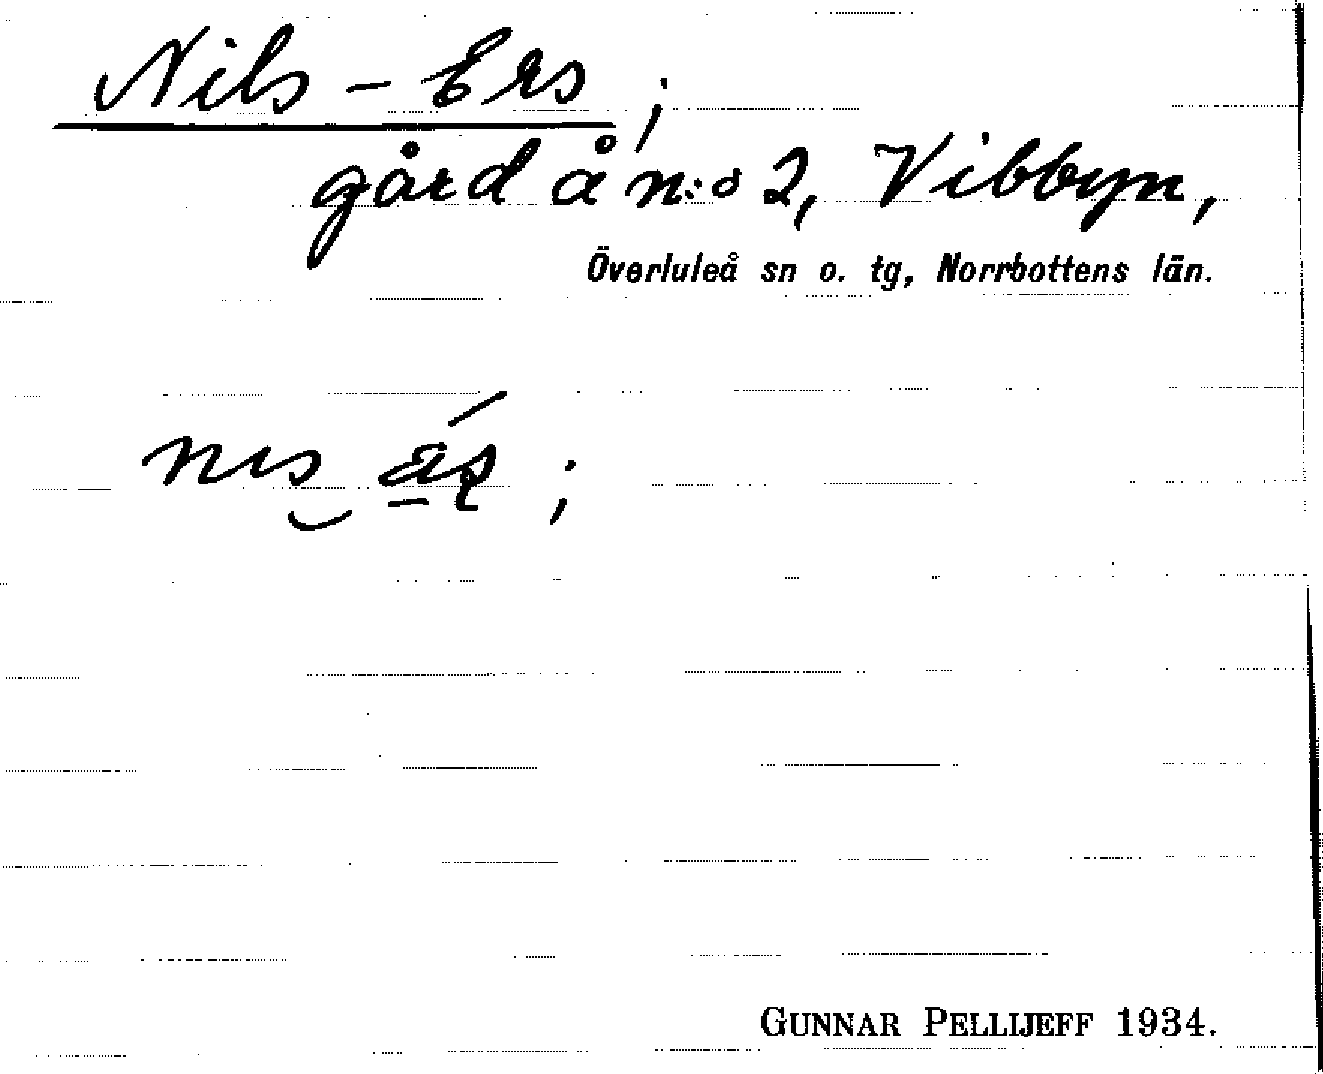 Nils-Ers;
gård å n:o 2, Vibbyn,
Överluleå sn o. tg, Norrbottens län.
GUNNAR PELLIJEFF 1934.